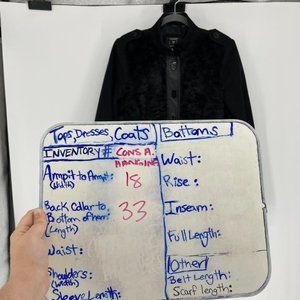 Tops, Dresses, Coats
INVENTORY # CONS A.
Armpit to Armpit: 18
(Width)
Back Collar to
Bottom of Hem: 33
(Length)
Waist:
Shoulders:
(Width)
Sleeve Length:
Bottoms
Waist:
Rise:
Inseam:
Full Length:
Other
Belt Length:
Scarf Length: